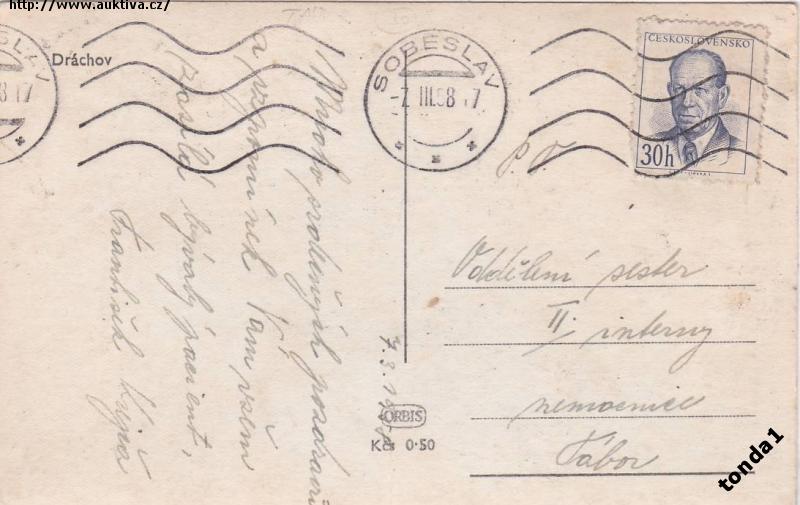 http://www.auktiva.cz/
Dráchov
Mnoho srdečných pozdravů
a vzpomínek Vám všem
zasílá bývalý pacient,
František
7.3.
SOBĚSLAV
-7.III.58 17
ČESKOSLOVENSKO
30h
P. T.
Oddělení sester
II. interny
nemocnice
Tábor
ORBIS
Kčs 0·50
tonda1